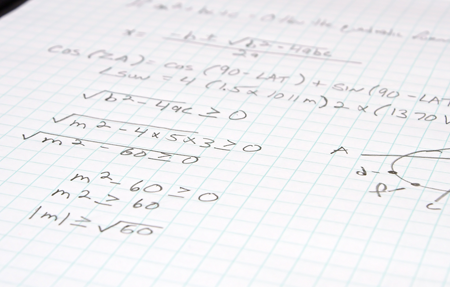 x = -b ± √b² - 4abc / 2a
cos(ZA) = cos(90-LAT) + sin(90-LAT
Lsun = 4(1.5x1011m)2 x (1370
√b² - 4ac ≥ 0
√m² - 4x5x3 ≥ 0
√m² - 60 ≥ 0
m² - 60 ≥ 0
m² ≥ 60
|m| ≥ √60
A
d
p
C